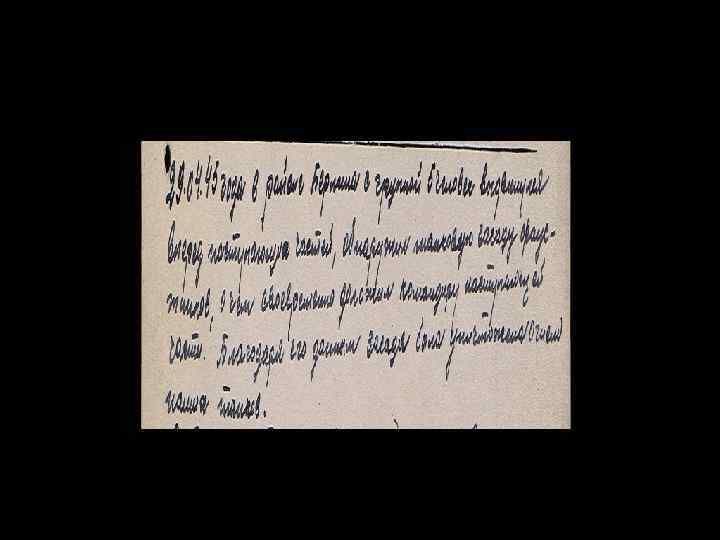 29.04.45 года в районе Берлина с группой 6 человек выдвинулся
вперед наступающих частей, обнаружил танковую засаду фаус-
тников, о чем своевременно доложил командиру наступающей
части. Благодаря его данным засада была уничтожена огнем
наших танков.